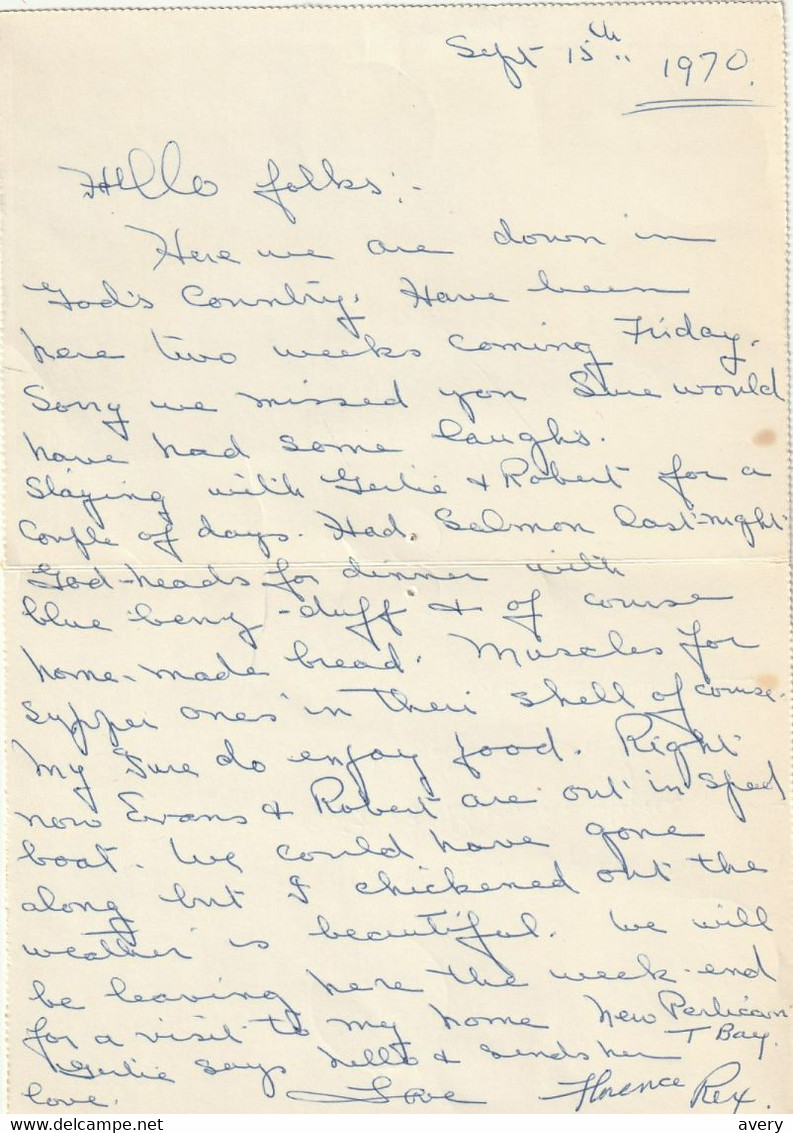 Sept 15th 1970.
Hello folks:-
Here we are down in
God's Country. Have been
here two weeks coming Friday.
Sorry we missed you Sure would
have had some laughs.
Staying with Gertie & Robert for a
Couple of days. Had Salmon last-night
God-heads for dinner with
blue berry-duff & of course
home-made bread. Muscles for
supper ones in their shell of course.
My Sure do enjoy food. Right
now Evans & Robert are out in sped
boat. We could have gone
along but I chickened out the
weather is beautiful. We will
be leaving here the week-end
for a visit to my home New Perlican
T Bay.
Gertie says hello & sends her
love. Love Florence Rex.
avery